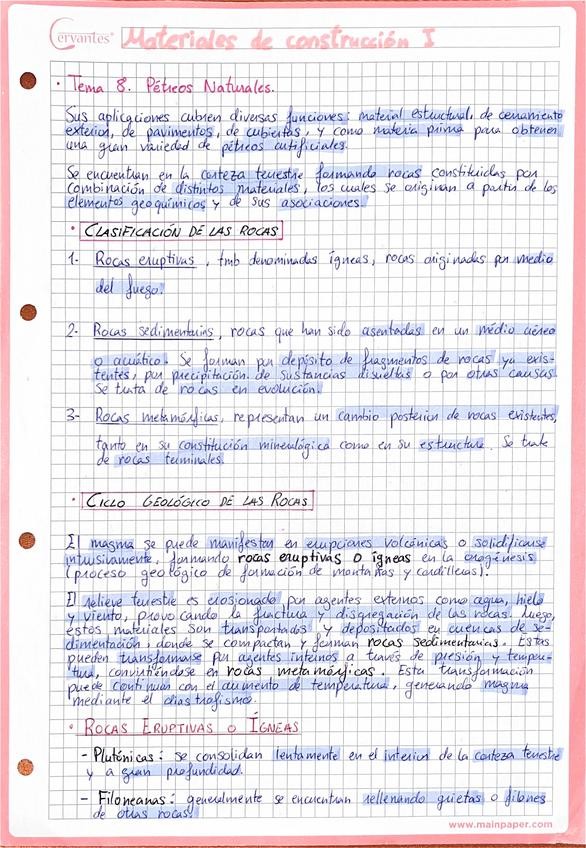 Cervantes
Materiales de construcción I
· Tema 8. Pétreos Naturales.
Sus aplicaciones cubren diversas funciones: material estructural, de cerramiento
exterior, de pavimentos, de cubiertas, y como materia prima para obtener
una gran variedad de pétreos artificiales.
Se encuentran en la corteza terrestre formando rocas constituidas por
combinación de distintos materiales, los cuales se originan a partir de los
elementos geoquímicos y de sus asociaciones.
· CLASIFICACIÓN DE LAS ROCAS
1- Rocas eruptivas, tmb denominadas ígneas, rocas originadas por medio
del fuego.
2- Rocas sedimentarias, rocas que han sido asentadas en un medio aéreo
o acuático. Se forman por depósito de fragmentos de rocas ya exis-
tentes, por precipitación de sustancias disueltas o por otras causas.
Se trata de rocas en evolución.
3- Rocas metamórficas, representan un cambio posterior de rocas existentes,
tanto en su constitución mineralógica como en su estructura. Se trata
de rocas terminales.
· CICLO GEOLÓGICO DE LAS ROCAS
El magma se puede manifestar en erupciones volcánicas o solidificarse
intrusivamente, formando rocas eruptivas o ígneas en la orogénesis
(proceso geológico de formación de montañas y cordilleras).
El relieve terrestre es erosionado por agentes externos como agua, hielo
y viento, provocando la fractura y disgregación de las rocas. Luego,
estos materiales son transportados y depositados en cuencas de se-
dimentación, donde se compactan y forman rocas sedimentarias. Estas
pueden transformarse por agentes internos a través de presión y tempera-
tura, convirtiéndose en rocas metamórficas. Esta transformación
puede continuar con el aumento de temperatura, generando magma
mediante el diastrofismo.
· ROCAS ERUPTIVAS O ÍGNEAS
- Plutónicas: se consolidan lentamente en el interior de la corteza terrestre
y a gran profundidad.
- Filoneanas: generalmente se encuentran rellenando grietas o filones
de otras rocas.
www.mainpaper.com